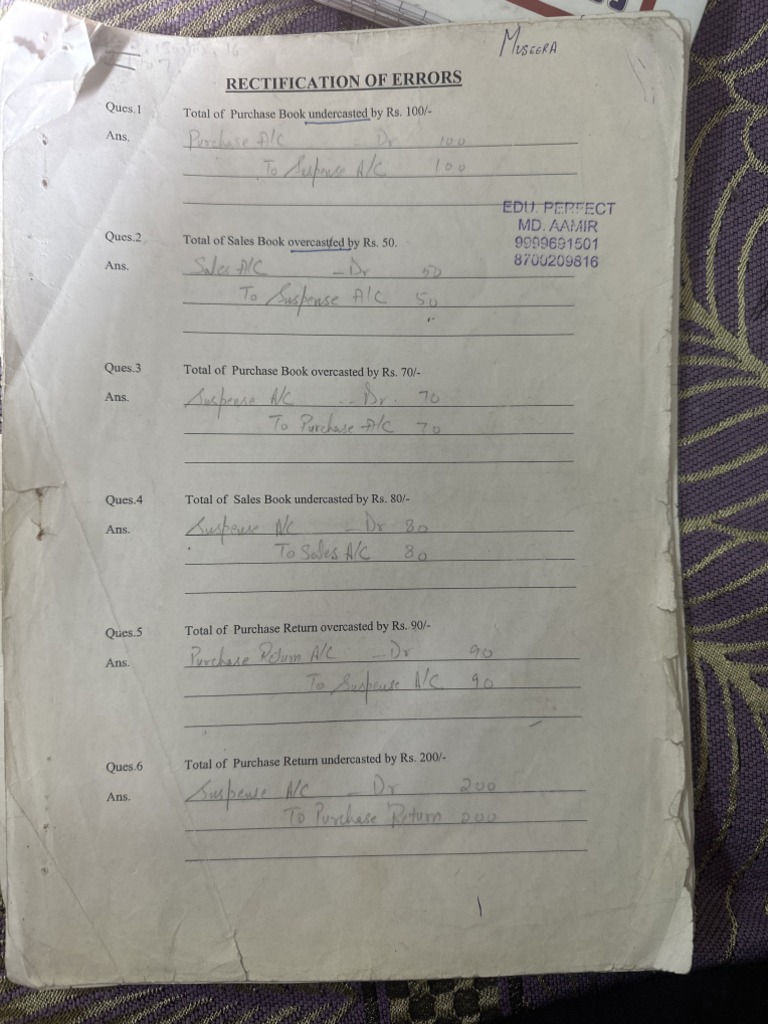 MUSEERA
RECTIFICATION OF ERRORS
Ques.1 Total of Purchase Book undercasted by Rs. 100/-
Ans. Purchase A/C - Dr 100
To Suspense A/C 100
EDU. PERFECT
MD. AAMIR
9999691501
8700209816
Ques.2 Total of Sales Book overcasted by Rs. 50.
Ans. Sales A/C - Dr 50
To Suspense A/C 50
Ques.3 Total of Purchase Book overcasted by Rs. 70/-
Ans. Suspense A/C -- Dr. 70
To Purchase A/C 70
Ques.4 Total of Sales Book undercasted by Rs. 80/-
Ans. Suspense A/C - Dr 80
To Sales A/C 80
Ques.5 Total of Purchase Return overcasted by Rs. 90/-
Ans. Purchase Return A/C - Dr 90
To Suspense A/C 90
Ques.6 Total of Purchase Return undercasted by Rs. 200/-
Ans. Suspense A/C - Dr 200
To Purchase Return 200
1